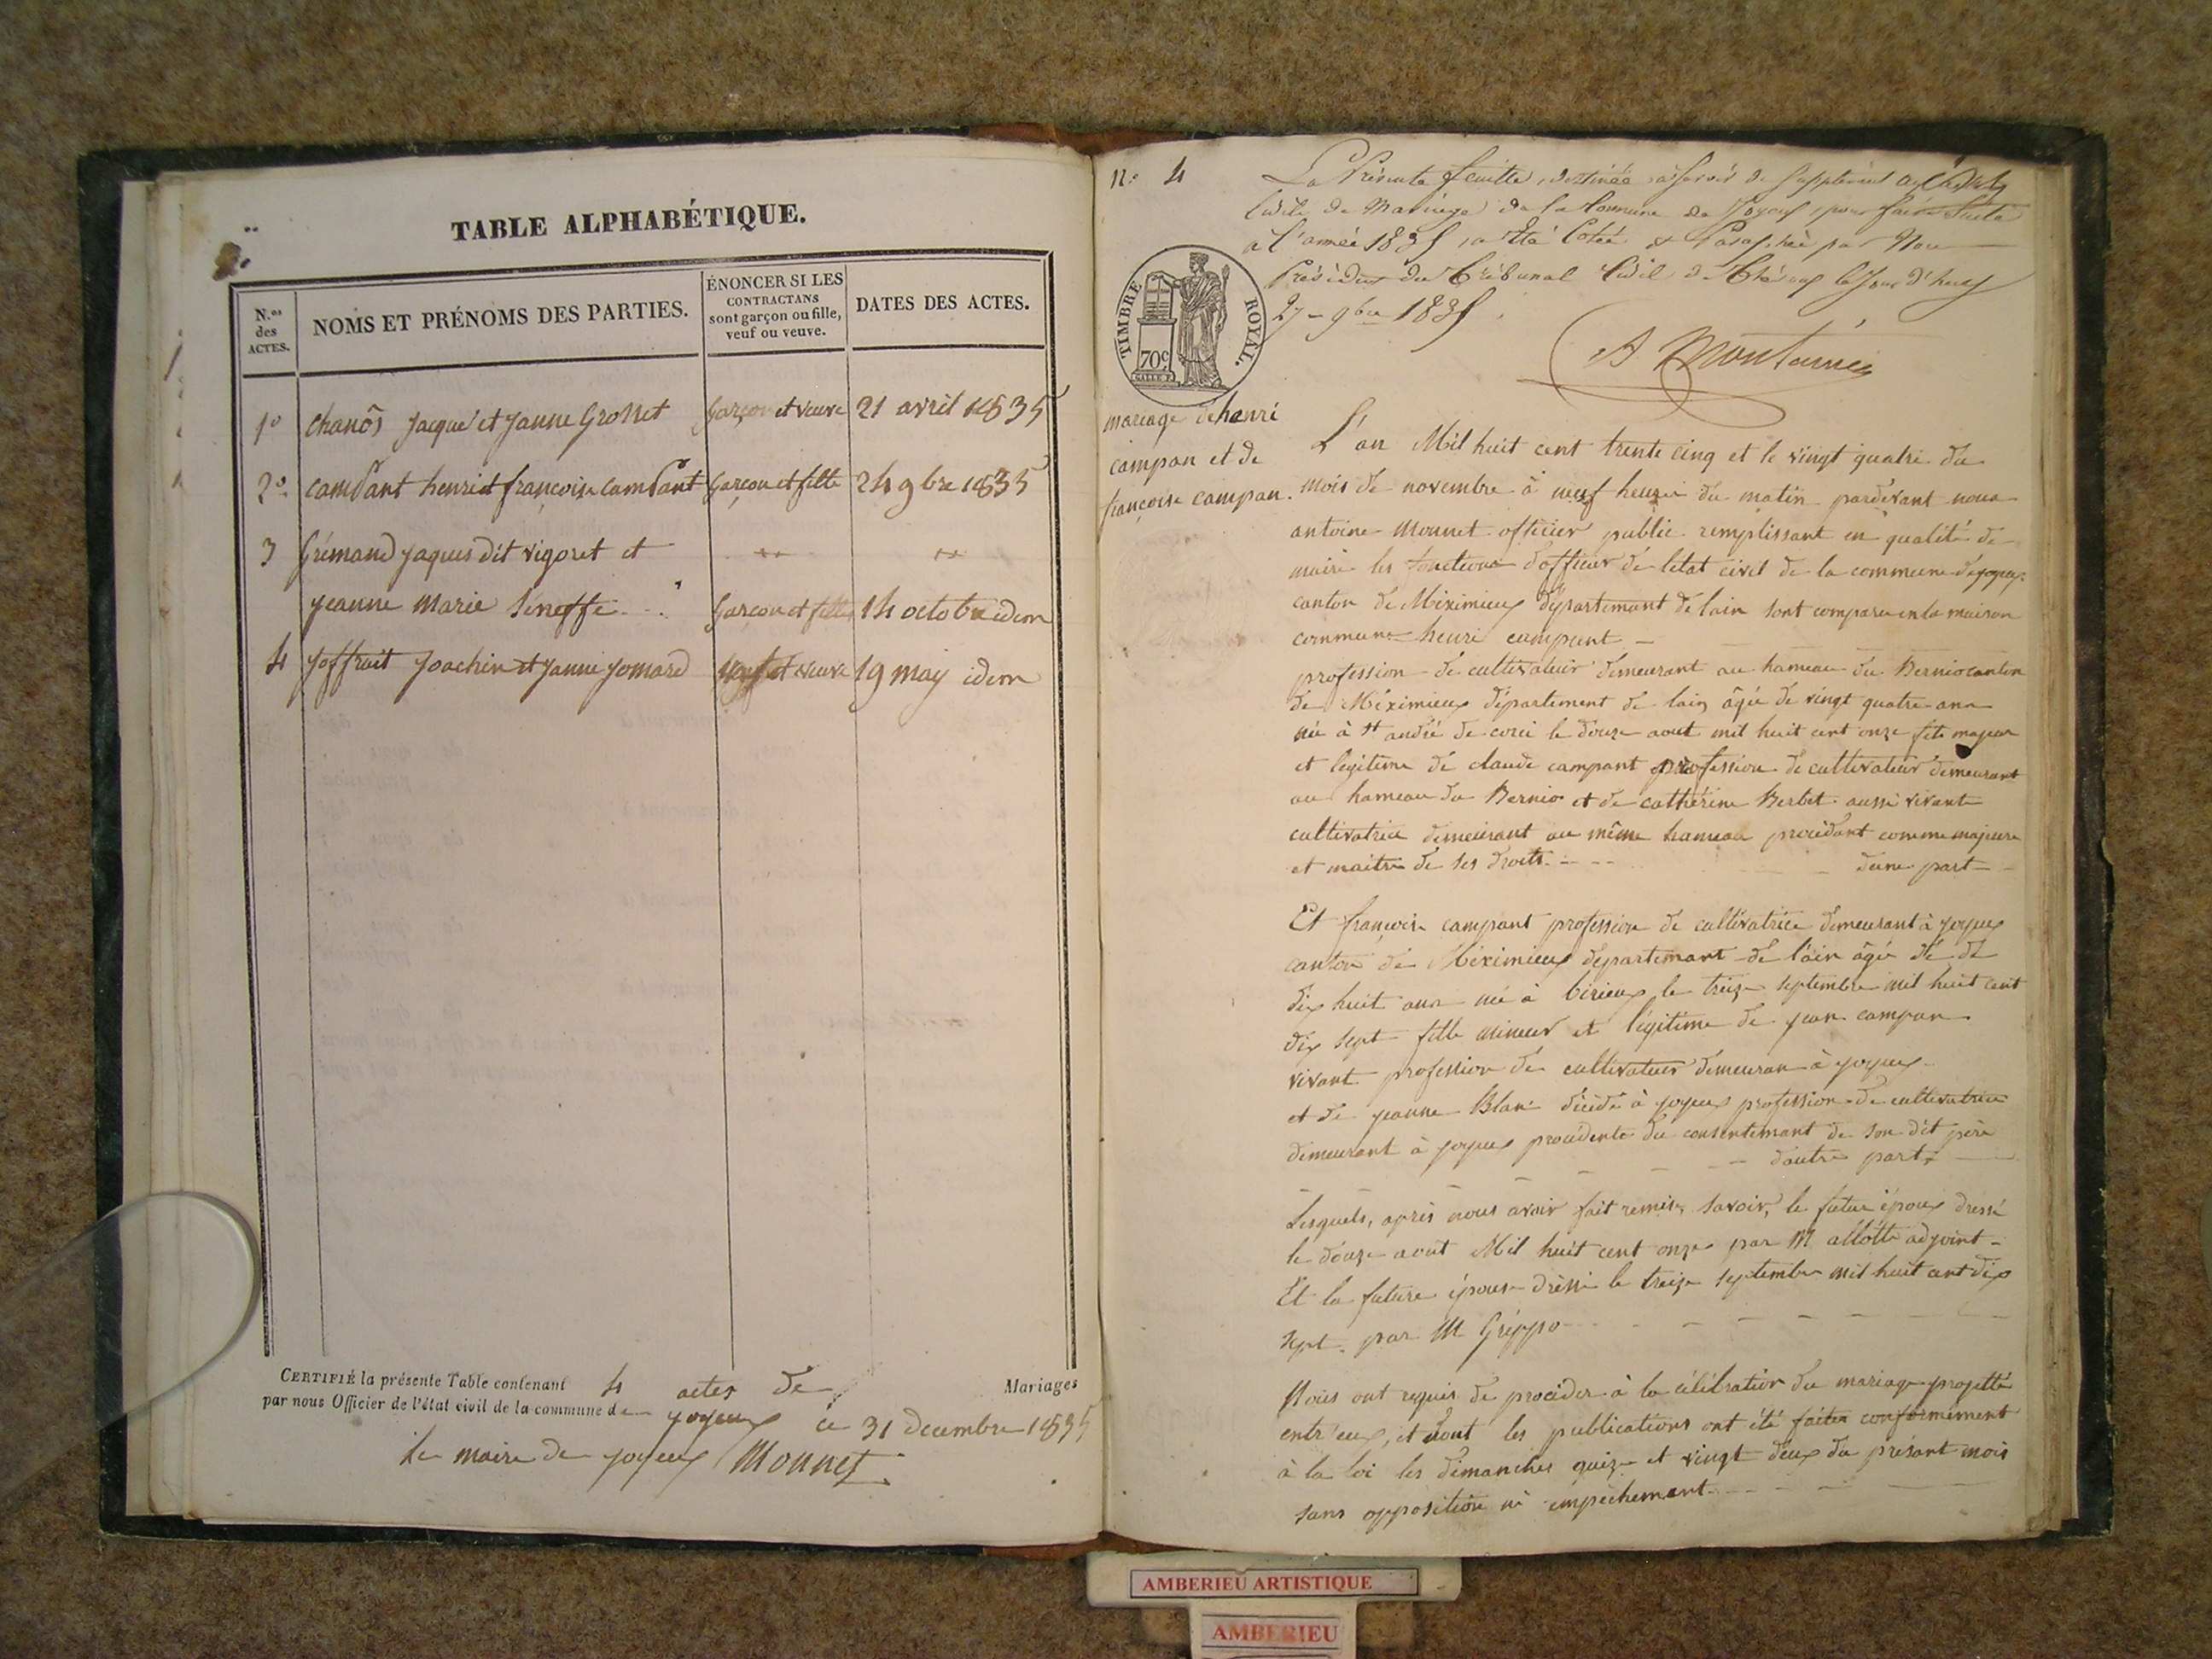 TABLE ALPHABÉTIQUE.
N.os des ACTES.
NOMS ET PRÉNOMS DES PARTIES.
ÉNONCER SI LES CONTRACTANS sont garçon ou fille, veuf ou veuve.
DATES DES ACTES.
1o chanos Jacque et Janne Grosset garçon et veuve 21 avril 1835
2o campant henri et francoise campant garçon et fille 24 9bre 1835
3 Grémand Jaques dit vigoret et
jeanne Marie Seneffe garçon et fille 14 octobre idem
4 Joffrait Joachin et Janne Jomard veuf et veuve 19 may idem
CERTIFIÉ la présente Table contenant 4 actes de Mariages
par nous Officier de l'état civil de la commune de joyeux ce 31 decembre 1835
le maire de joyeux Monnet
No 4
La Présente feuille, destinée à servir de supplément
Civils de Mariage de la Commune de Joyeux, pour faire suite
à l'année 1835, a été Cotée & Paraphée par Nous
Président du Tribunal Civil de Trévoux le Jour d'huy
27 - 9bre 1835.
TIMBRE ROYAL.
70c
mariage de henri
campan et de
françoise campan.
L'an Mil huit cent trente cinq et le vingt quatre du
mois de novembre à neuf heure du matin pardevant nous
antoine Monnet officier public remplissant en qualité de
maire les fonctions d'officier de letat civil de la commune de joyeux
canton de Méximieux département de lain sont comparu en la maison
commune henri campant -
profession de cultivateur demeurant au hameau du Bernio canton
de Méximieux département de lain âgée de vingt quatre ans
née à st andré de corci le douze aout mil huit cent onze fils majeur
et legitime de claude campant profession de cultivateur demeurant
au hameau du Bernio et de cathérine Berbet aussi vivante
cultivatrice demeurant au même hameau procédant comme majeure
et maitre de ses droits - - - dune part -
Et francoise campant profession de cultivatrice demeurant à joyeux
canton de Méximieux département de l'ain âgée de de
dix huit ans née à birieux le treize septembre mil huit cent
dix sept fille mineur et légitime de jean campan
vivant profession de cultivateur demeuran à joyeux
et de jeanne Blan décédé à joyeux profession de cultivatrice
demeurant à joyeux procédente du consentemant de son dit père
- - - dautre part -
Lesquels, après nous avoir fait remise, savoir, le futur époux dressé
le douze aout Mil huit cent onze par M allotte adjoint -
Et la future épouse dréssé le treize septembre mil huit cent dix
sept. par M Grippo - - -
Nous ont requis de procéder à la célébration du mariage projetté
entr'eux, et dont les publications ont été faites conformément
à la loi les dimanches quize et vingt deux du présant mois
sans opposition ni empechemant - - -
AMBERIEU ARTISTIQUE
AMBERIEU